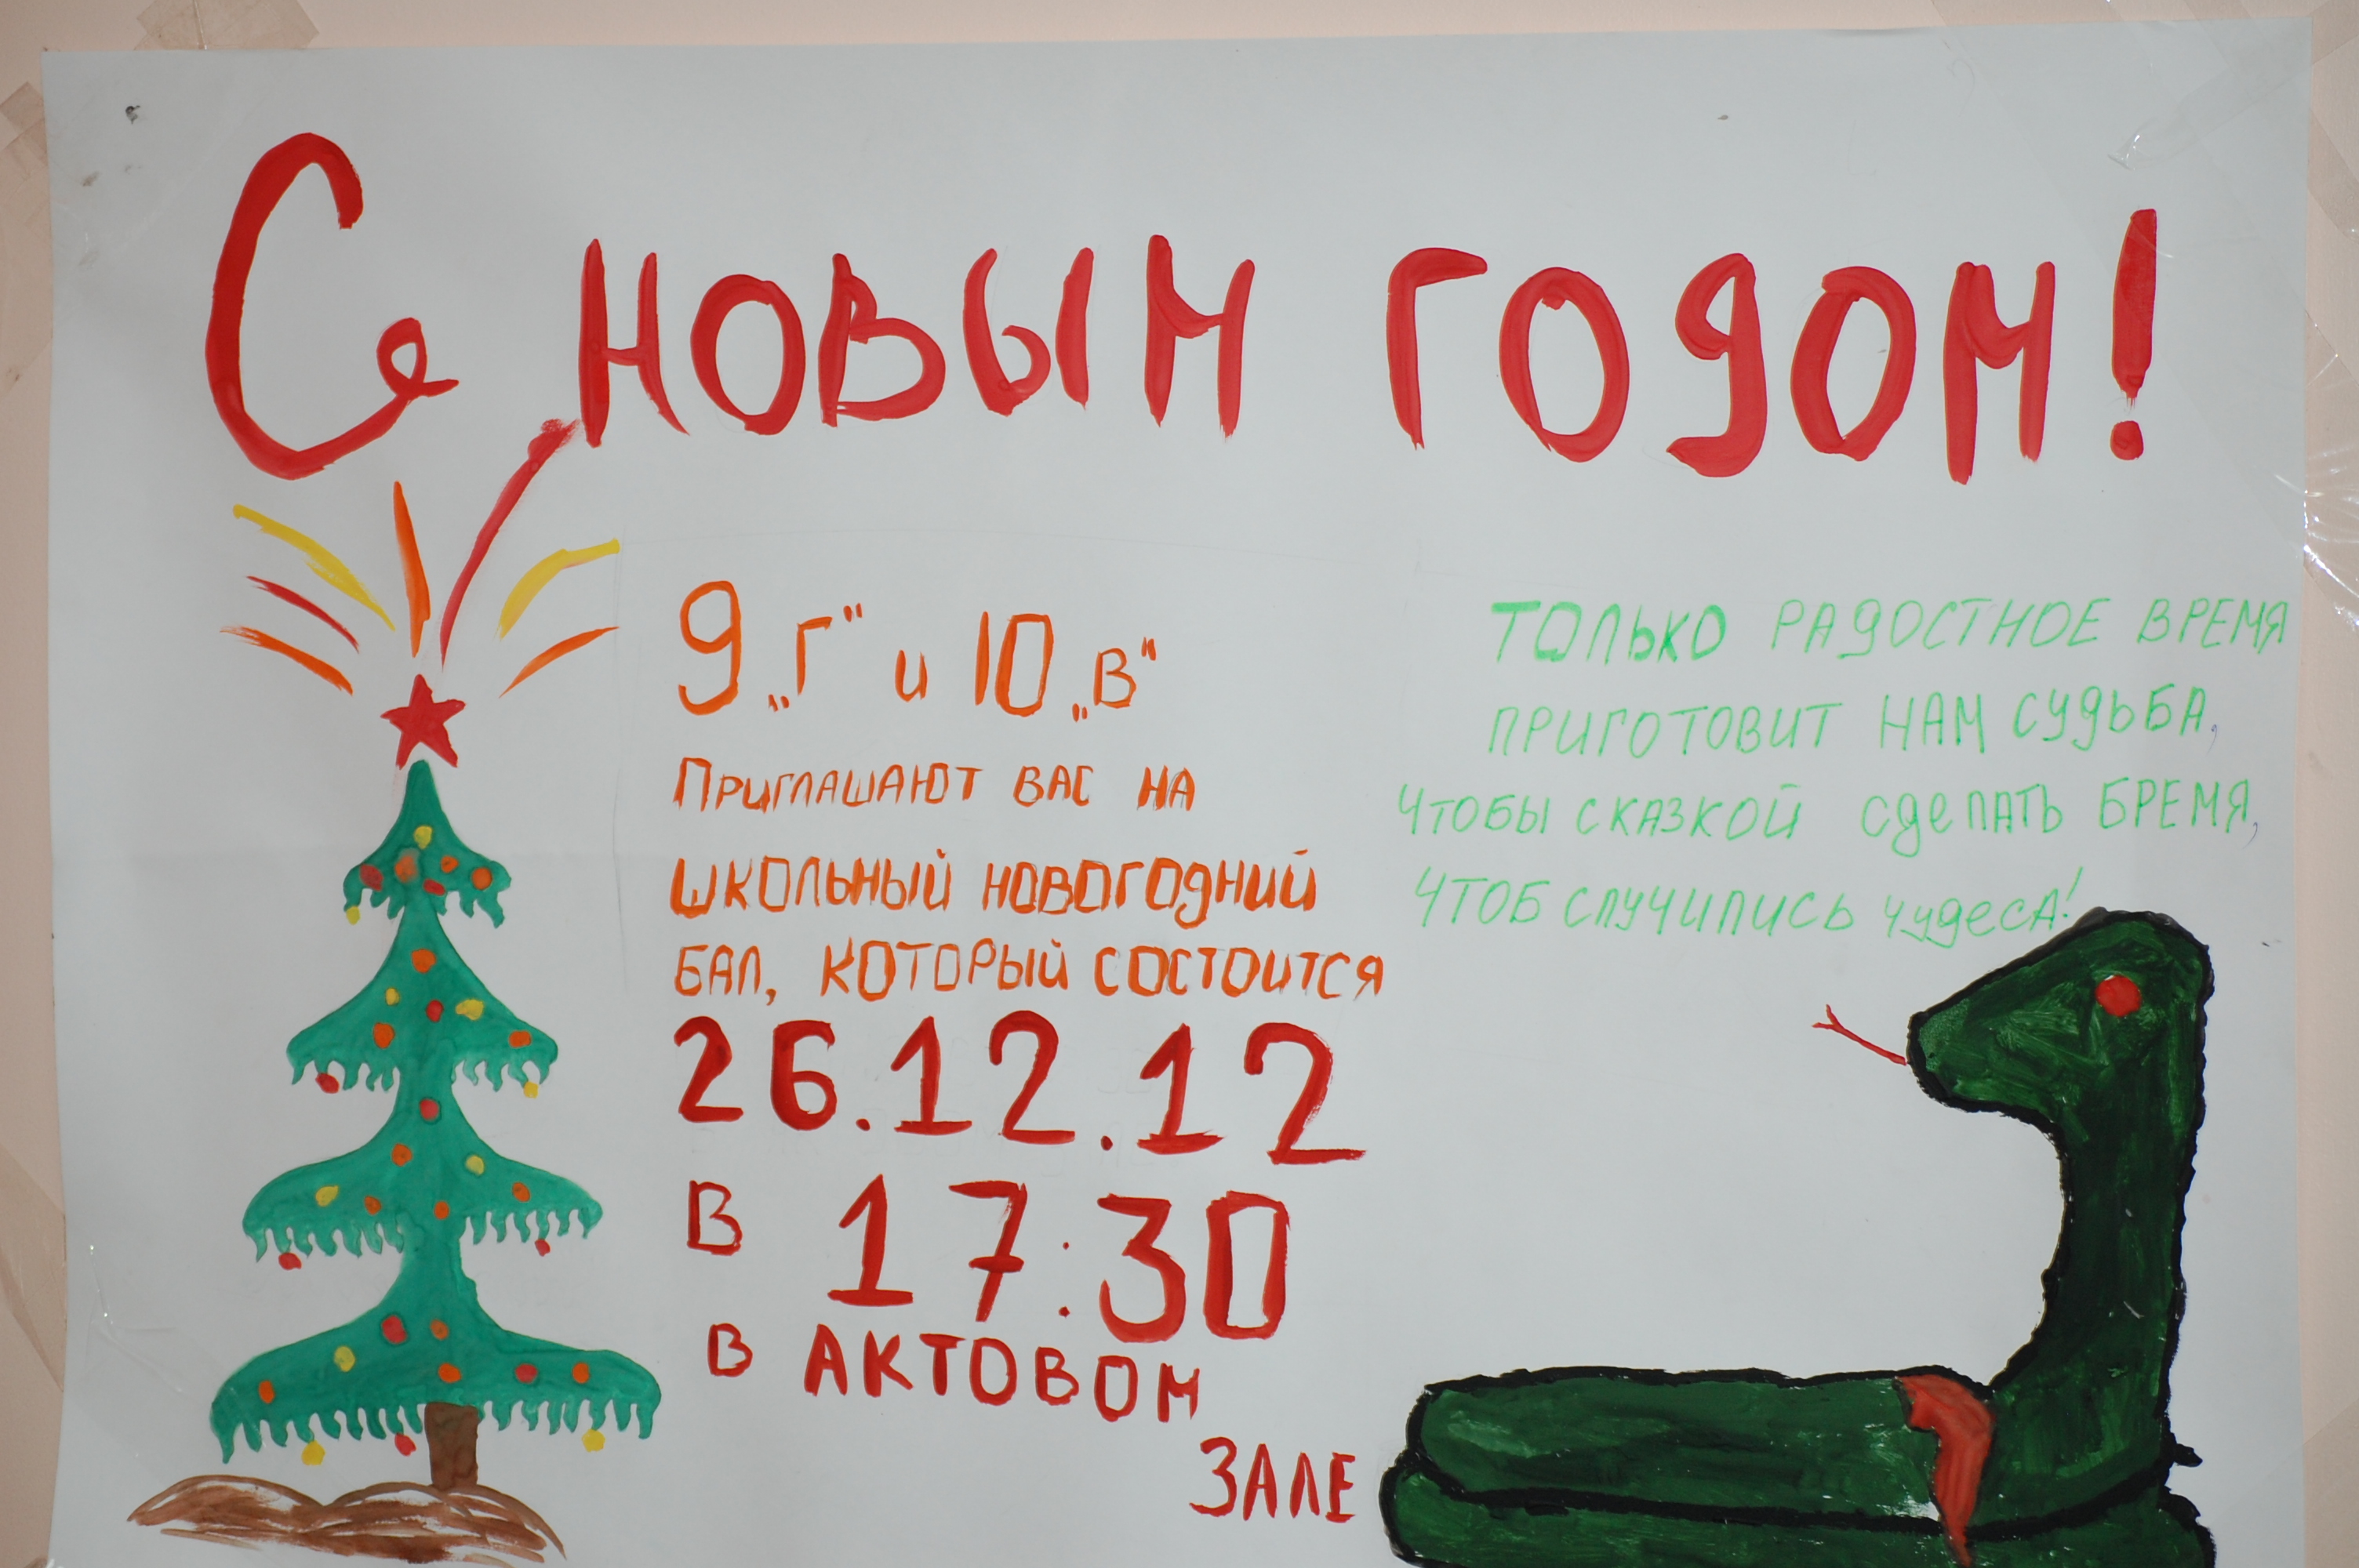 С новым годом!
9 „Г“ и 10 „В“
Приглашают вас на
школьный новогодний
бал, который состоится
26.12.12
в 17:30
в актовом
зале
Только радостное время
приготовит нам судьба,
чтобы сказкой сделать бремя,
чтоб случились чудеса!